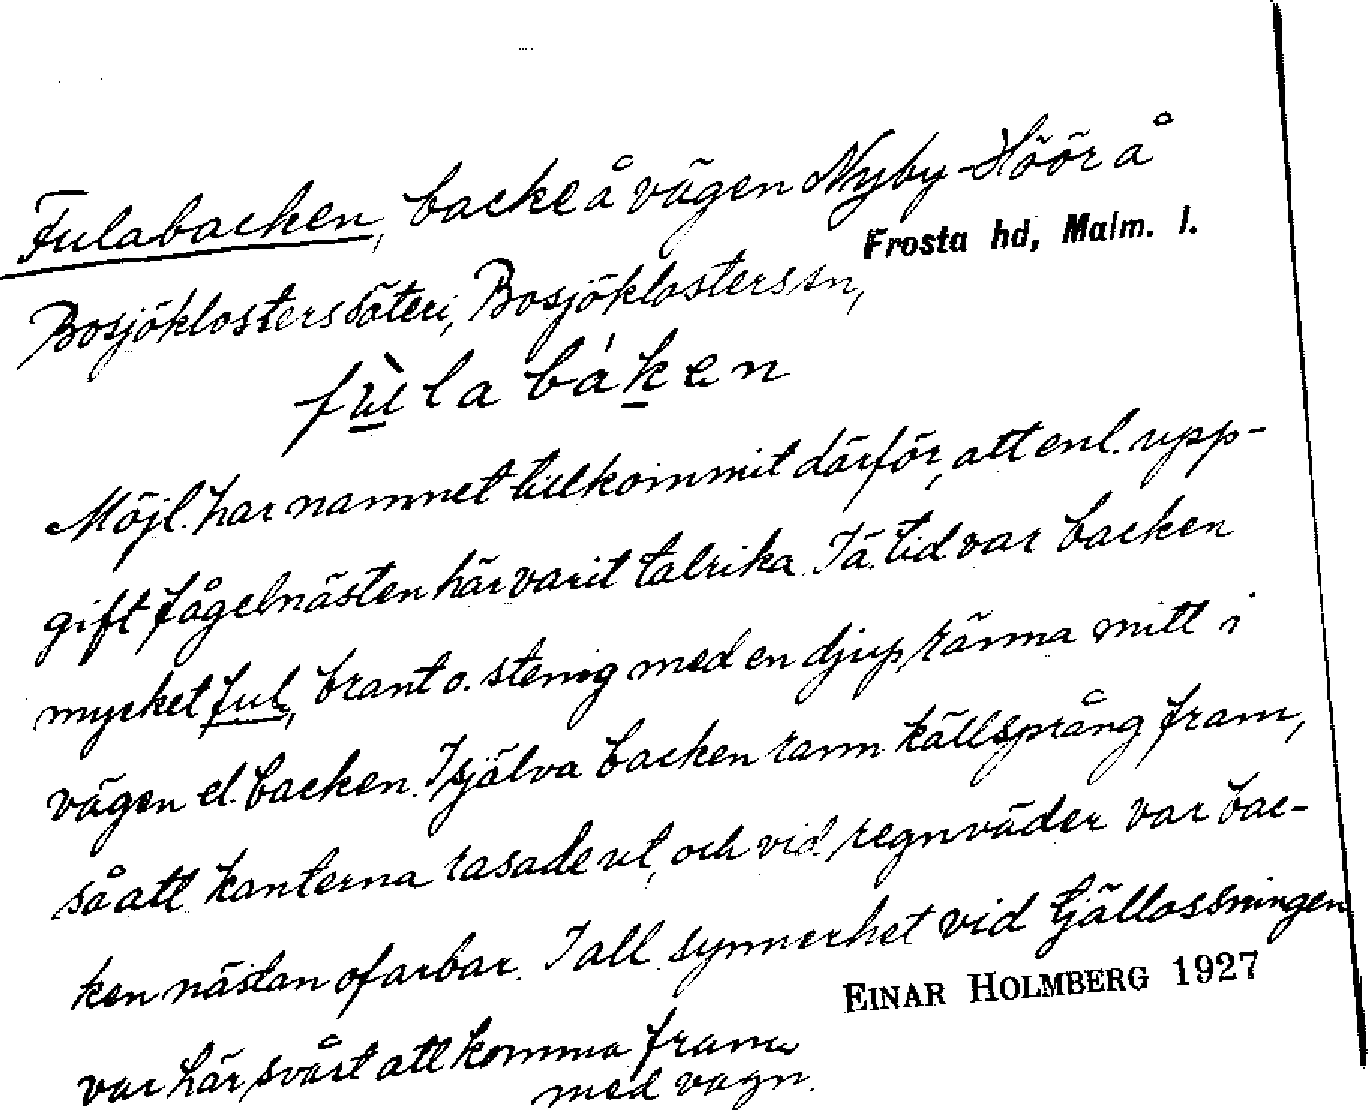 Fulabacken, backe å vägen Nyby-Höör å
Frosta hd, Malm. l.
Bosjöklosters säteri, Bosjöklosters sn,
fùla báken
Möjl. har namnet tillkommit därför, att enl. upp-
gift fågelnästen här varit talrika. I ä. tid var backen
mycket ful, brant o. stenig med en djup ränna mitt i
vägen el. backen. I själva backen rann källsprång fram,
så att kanterna rasade ut, och vid regnväder var bac-
ken nästan ofarbar. I all synnerhet vid tjällossningen
EINAR HOLMBERG 1927
var här svårt att komma fram
med vagn.